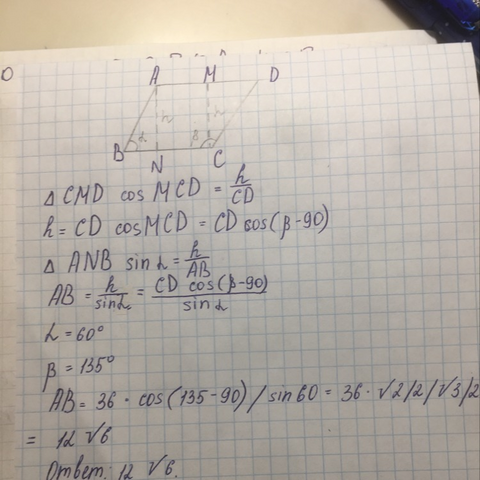 A M D
h h
α β
B N C
Δ CMD cos MCD = h/CD
h = CD cosMCD = CD cos(β-90)
Δ ANB sin α = h/AB
AB = h/sinα = CD cos(β-90)/sin α
α = 60°
β = 135°
AB = 36 · cos(135-90)/sin 60 = 36 · √2/2/√3/2
= 12 √6
Ответ: 12 √6.